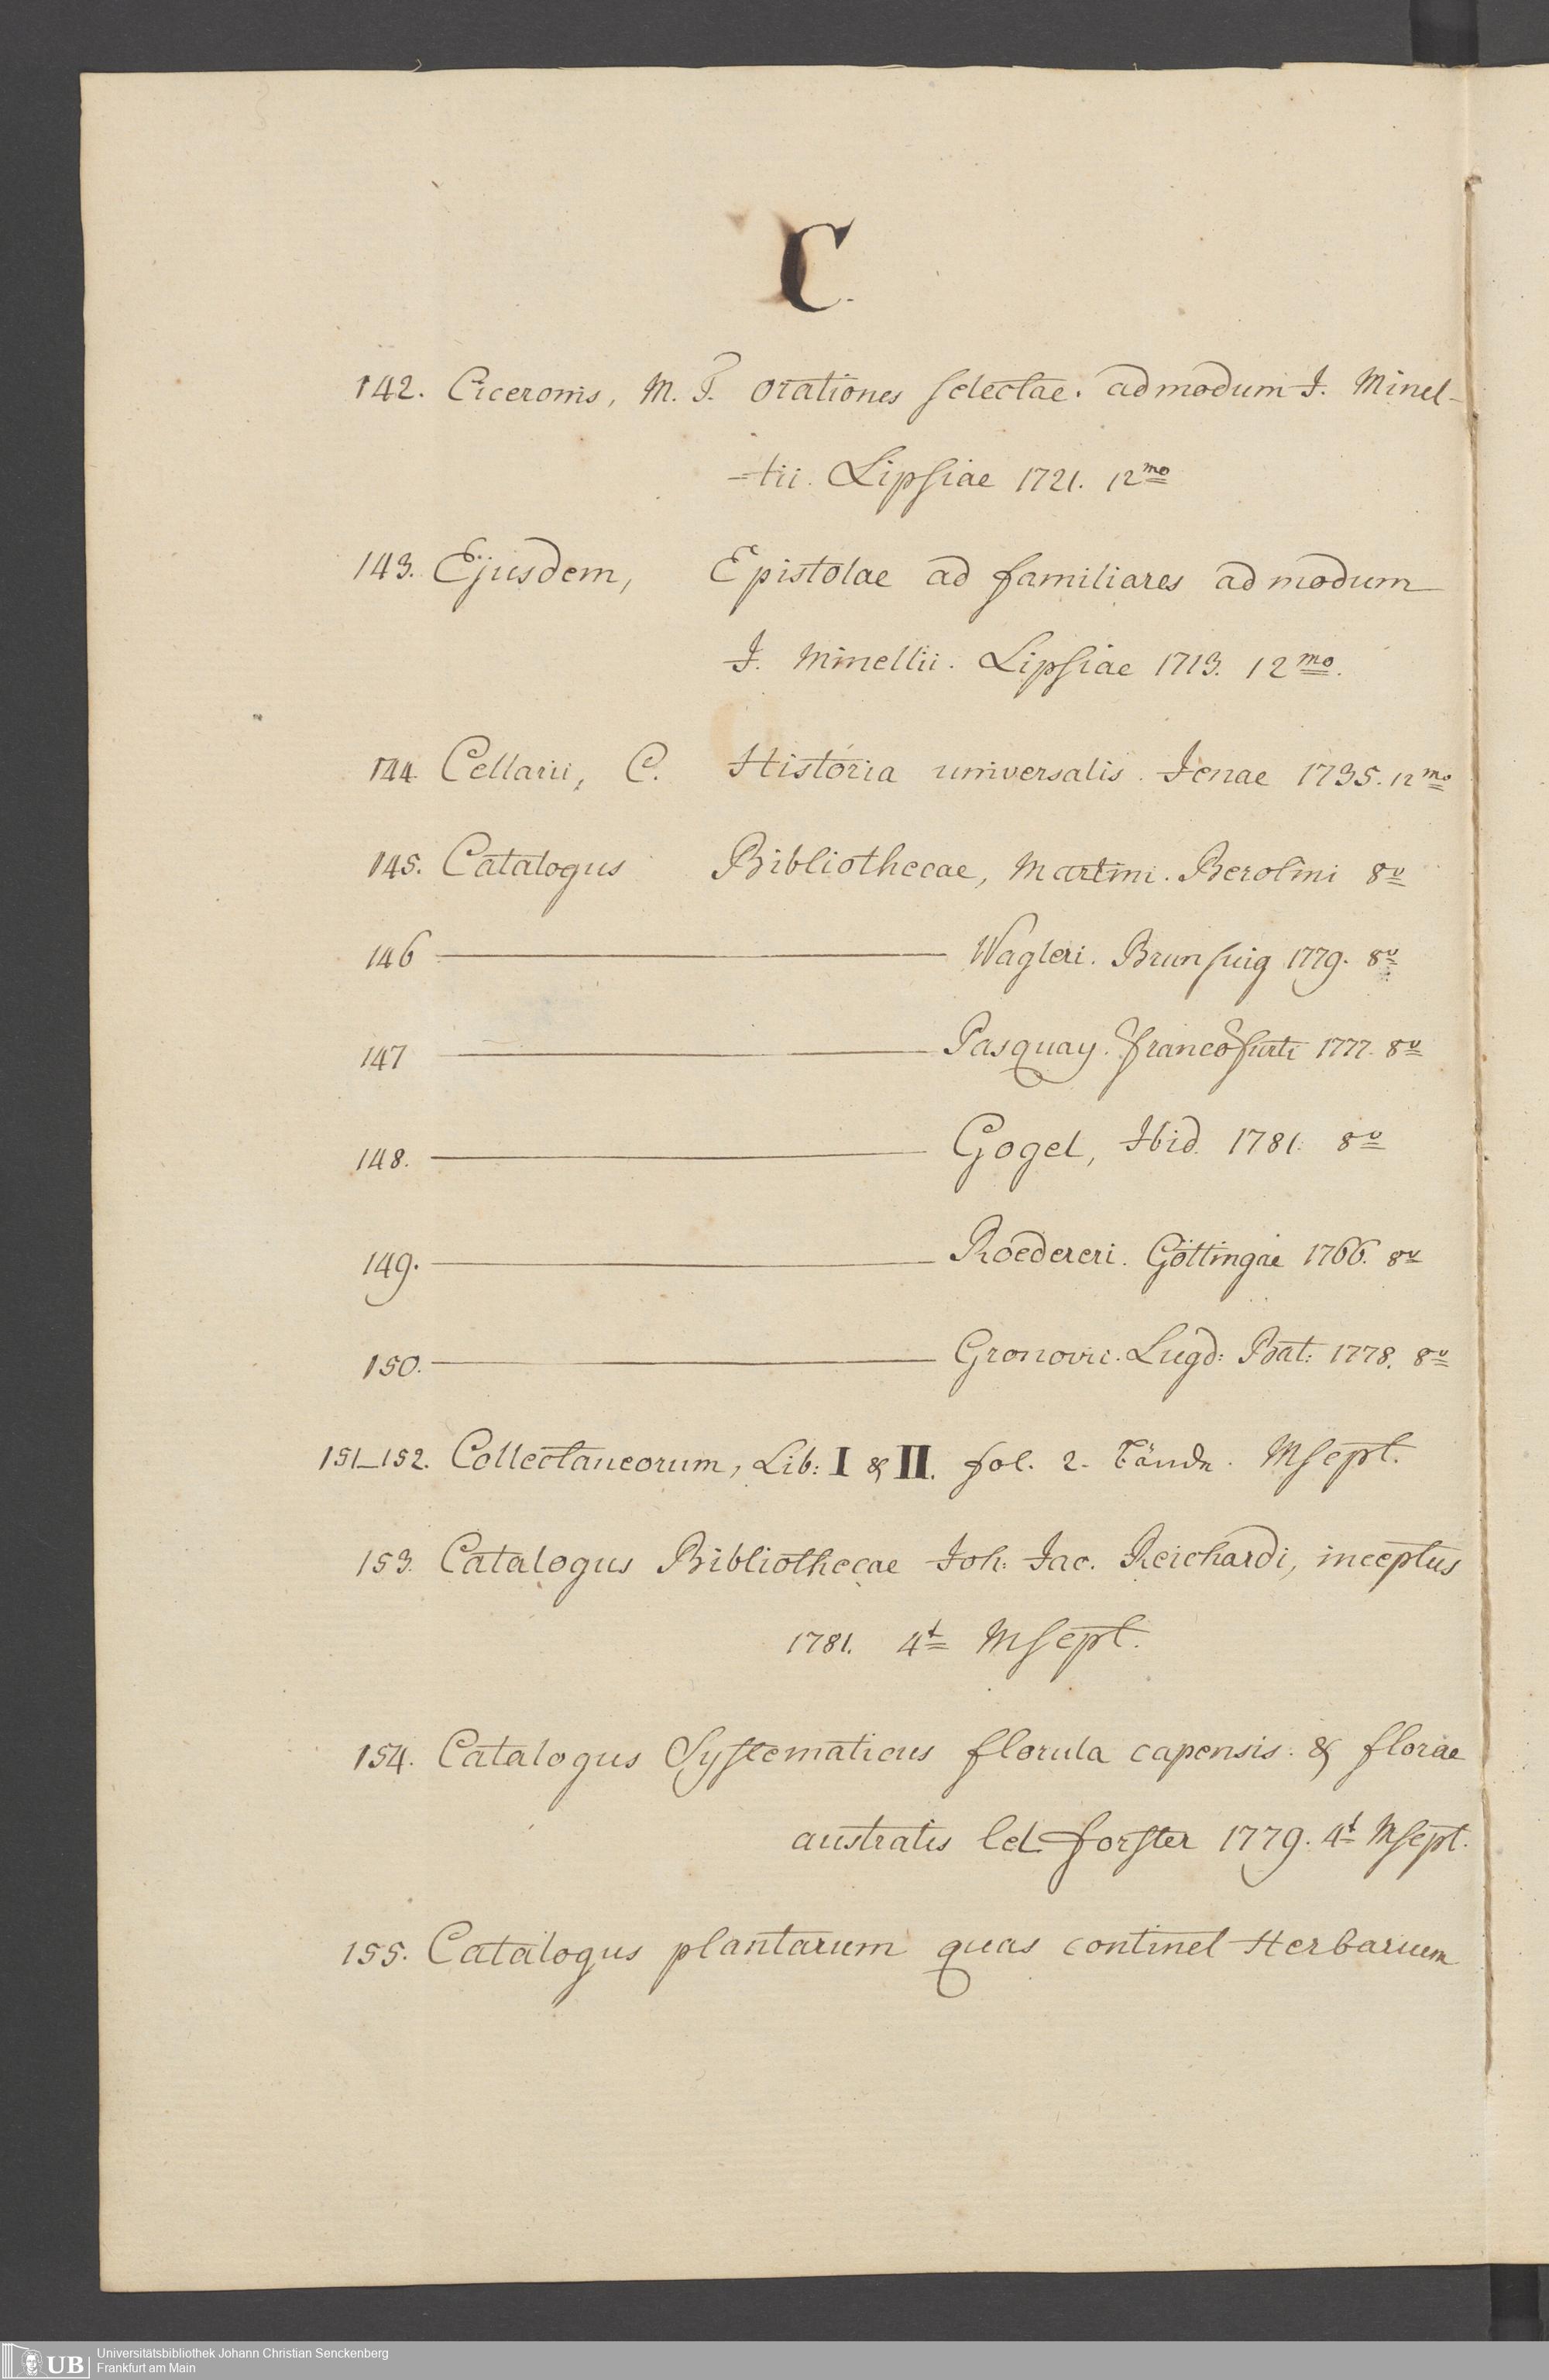 C.
142. Ciceronis, M. T. orationes selectae. ad modum J. Minel-
=lii. Lipsiae 1721. 12mo
143. Ejusdem, Epistolae ad familiares ad modum
J. Minellii. Lipsiae 1713. 12mo.
144. Cellarii, C. Historia universalis. Jenae 1735. 12mo
145. Catalogus Bibliothecae, Martini. Berolini 8v
146 ——— Wagleri. Brunsuig 1779. 8v
147 ——— Pasquay. Francofurti 1777. 8v
148. ——— Gogel, Ibid. 1781. 8v
149. ——— Roedereri. Göttingae 1766. 8v
150. ——— Gronovii. Lugd: Bat: 1778. 8v
151_152. Collectaneorum, Lib: I & II. fol. 2. Bände. Mscpt.
153. Catalogus Bibliothecae Joh: Jac. Reichardi, inceptus
1781. 4t Mscpt.
154. Catalogus Systematicus florula capensis. & florae
australis Cel. Forster 1779. 4t Mscpt.
155. Catalogus plantarum quas continet Herbarium
Universitätsbibliothek Johann Christian Senckenberg
Frankfurt am Main
UB